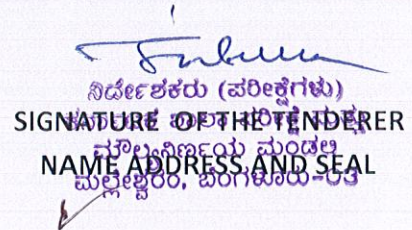 ನಿರ್ದೇಶಕರು (ಪರೀಕ್ಷೆಗಳು)
SIGNATURE OF THE TENDERER
ಕರ್ನಾಟಕ ಶಾಲಾ ಪರೀಕ್ಷೆ ಮತ್ತು
ಮೌಲ್ಯನಿರ್ಣಯ ಮಂಡಲಿ
NAME ADDRESS AND SEAL
ಮಲ್ಲೇಶ್ವರಂ, ಬೆಂಗಳೂರು-